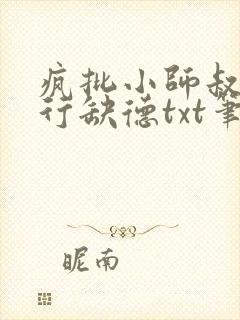 疯批小师叔
行缺德txt笔
昵南